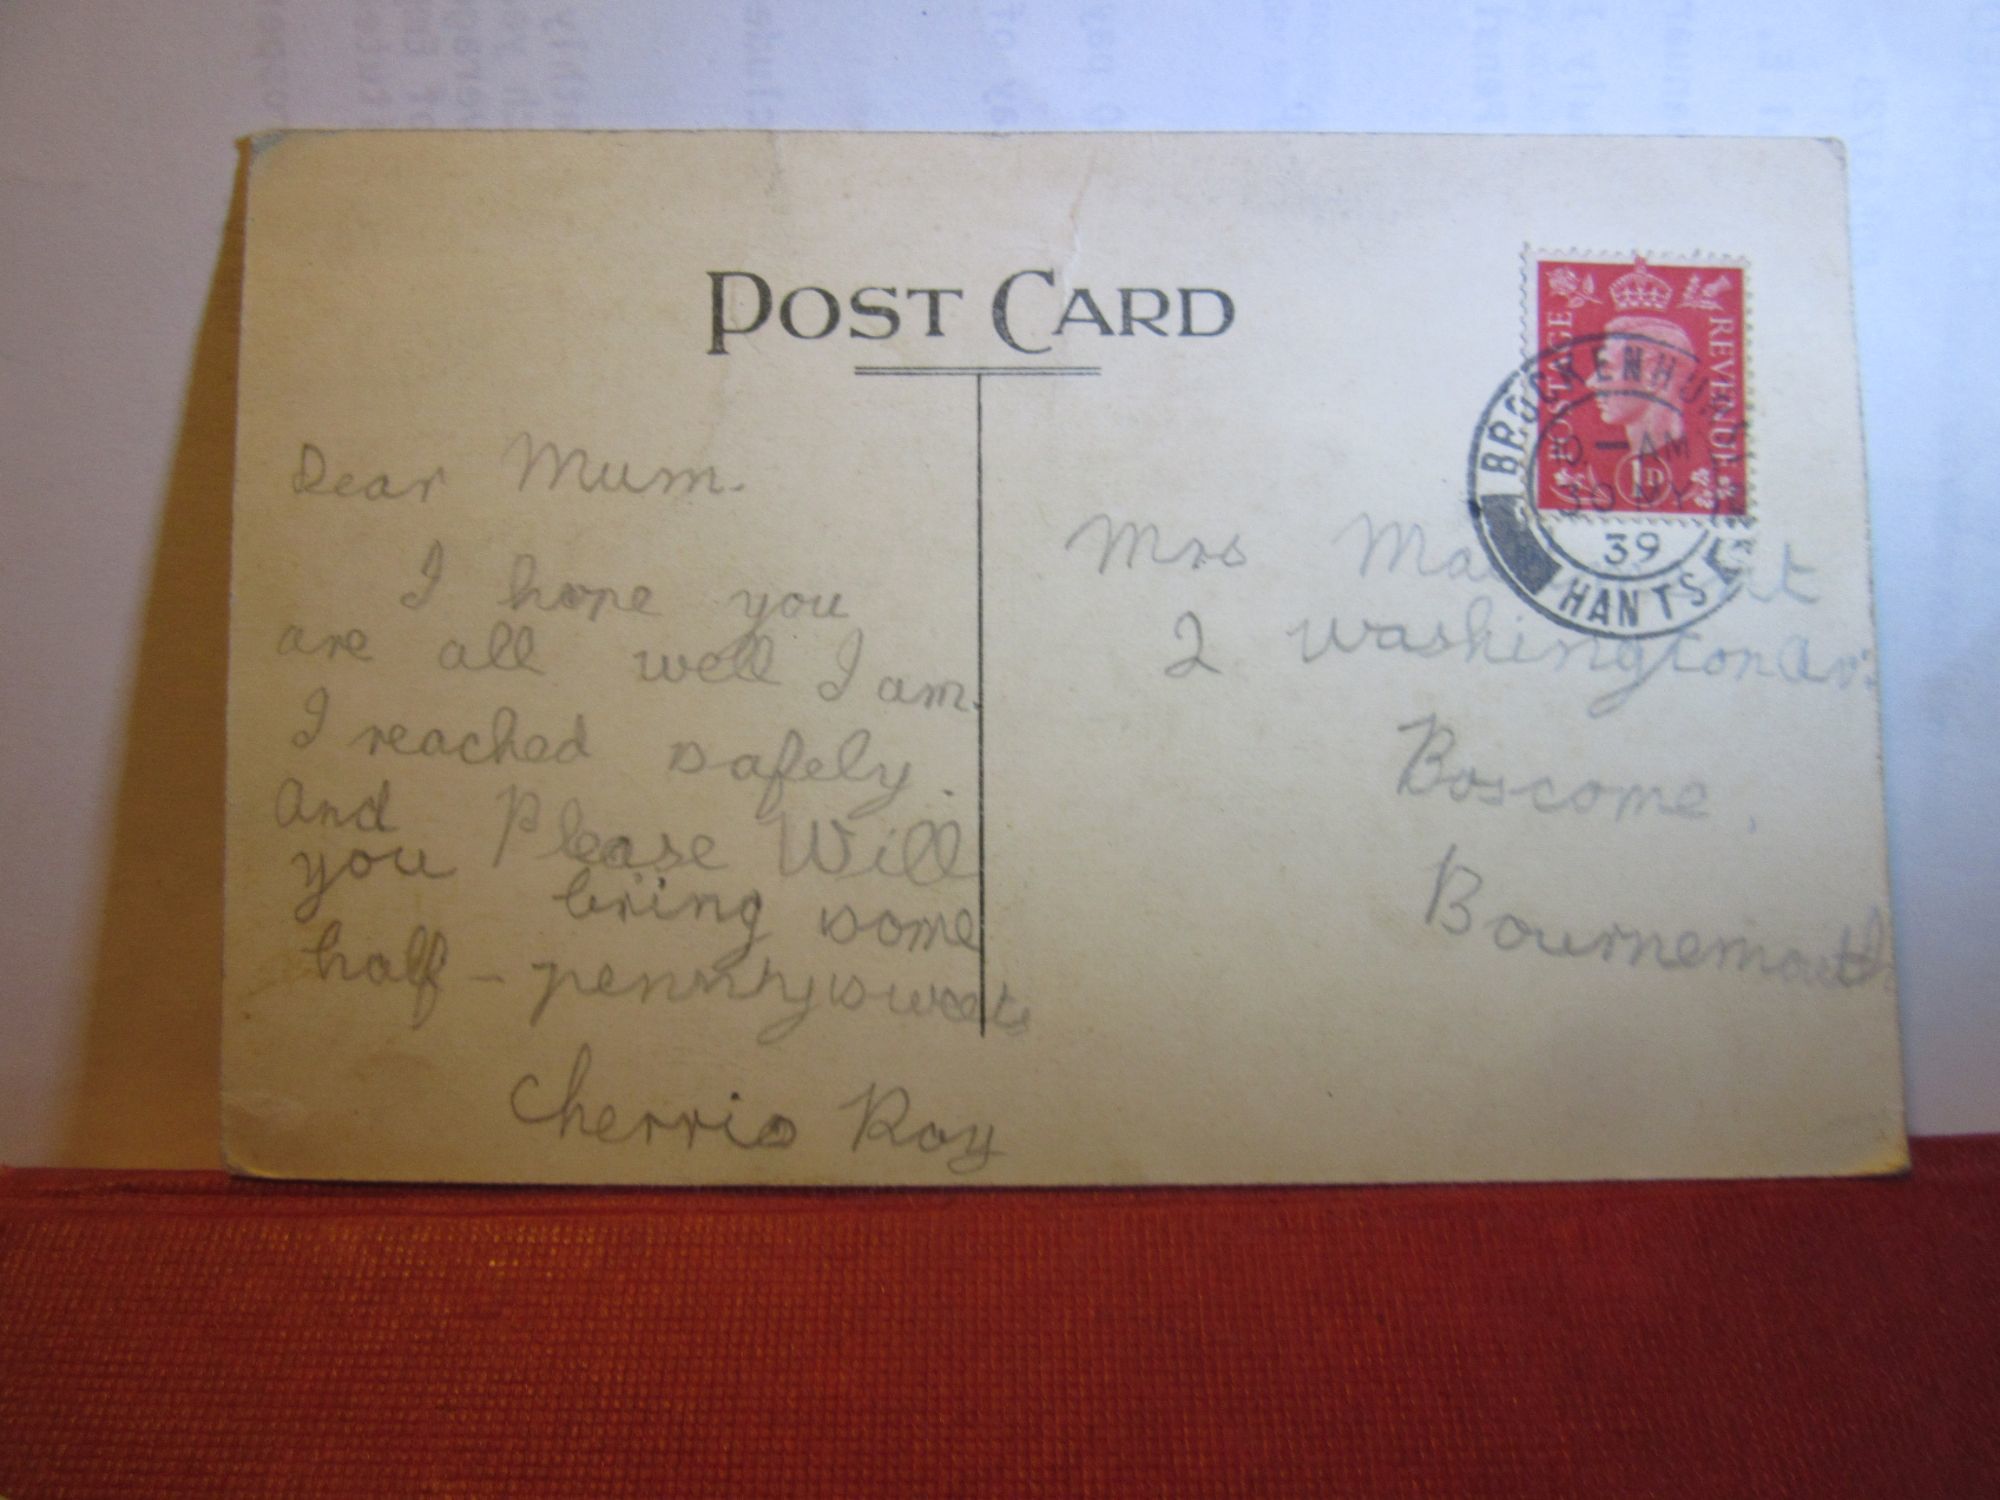 POST CARD
Dear Mum.
I hope you
are all well I am.
I reached safely.
And Please Will
you bring some
half-pennysweets
Cherrio Roy
POSTAGE REVENUE
1D
BROCKENHU
10 - AM
30 MY
39
HANTS
Mrs
2 Washington Av.
Boscome,
Bournemouth